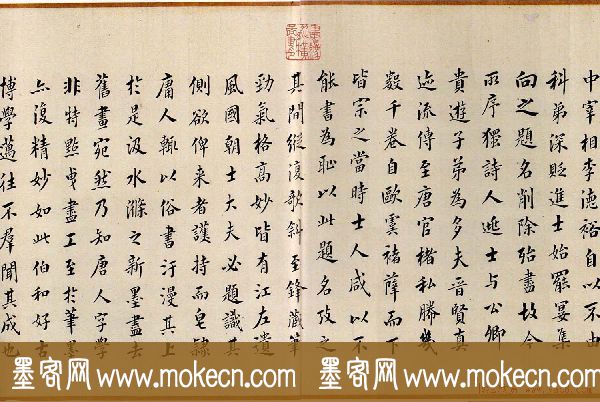 中宰相李德裕自以不由
科第深貶進士始罷宴集
向之題名削除殆盡故今
所序獨詩人逰士与公卿
貴遊子弟為多夫晉賢真
迹流傳至唐官楮私勝幾
數千卷自歐虞褚薛而下
皆宗之當時士人咸以不
能書為恥以此題名攷之
其間縱復欹斜至鋒藏筆
勁氣格高妙皆有江左遺
風國朝士大夫必題識其
側欲俾来者護持而皂隸
庸人輒以俗書汙漫其上
於是汲水滌之新墨盡去
舊畫宛然乃知唐人字學
非特點曳盡工至於筆墨
亦復精妙如此伯和好古
博學邁往不羣聞其成也
墨客网 www.mokecn.com 墨客网 www.mokecn.com